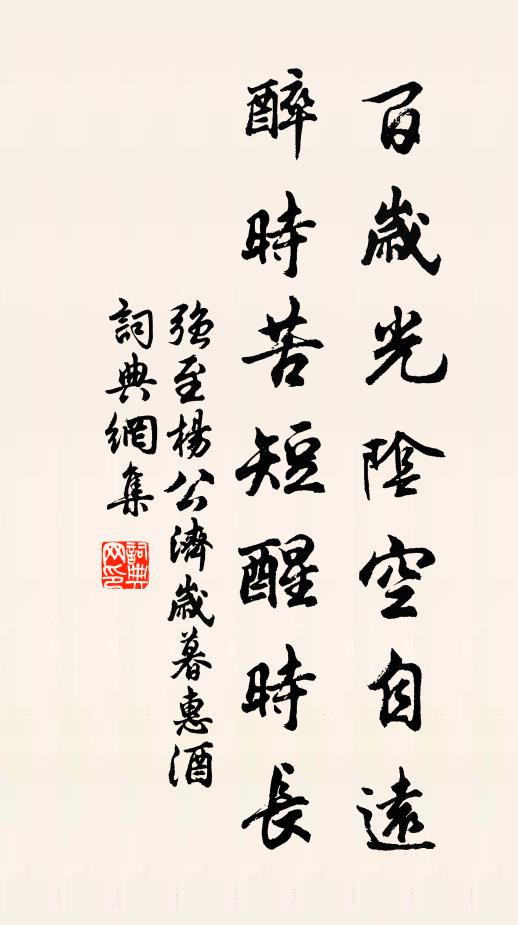 百歲光陰空自遠
醉時苦短醒時長
強至楊公濟歲暮惠酒
詞典網集
詞典網印